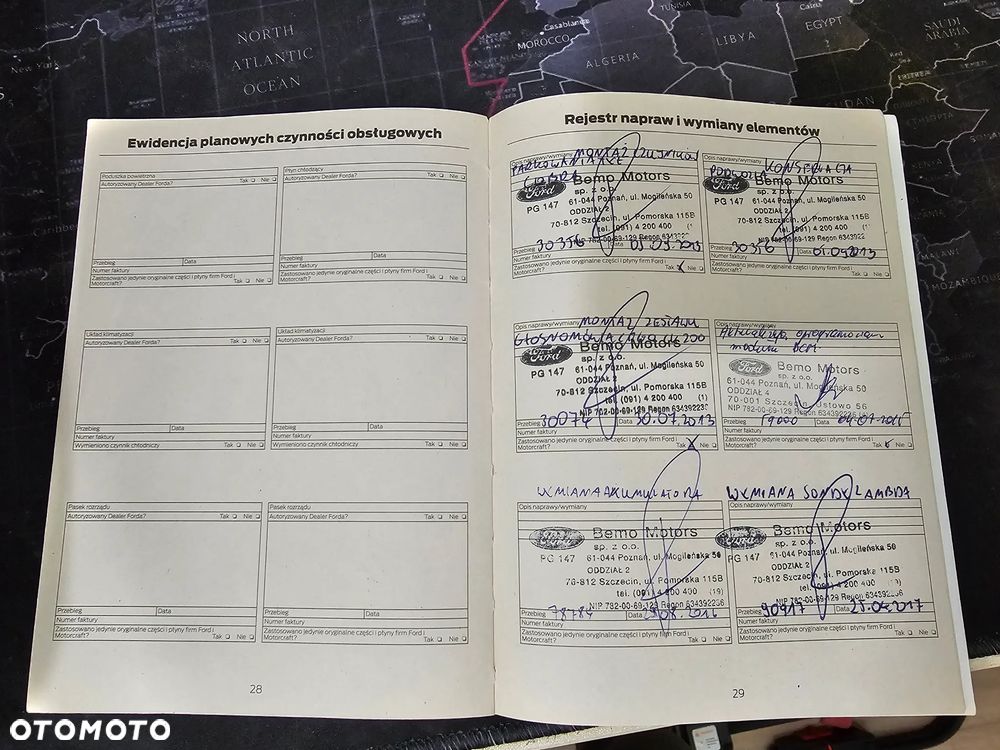 NORTH
ATLANTIC
OCEAN
New York
Casablanca
MOROCCO
ALGERIA
TUNISIA
LIBYA
EGYPT
SAUDI
ARABIA
ERITREA
ETHIOPIA
MOZAMBIQUE
Ewidencja planowych czynności obsługowych
Poduszka powietrzna
Autoryzowany Dealer Forda? Tak Nie
Przebieg Data
Numer faktury
Zastosowano jedynie oryginalne części i płyny firm Ford i
Motorcraft? Tak Nie
Płyn chłodzący
Autoryzowany Dealer Forda? Tak Nie
Przebieg Data
Numer faktury
Zastosowano jedynie oryginalne części i płyny firm Ford i
Motorcraft? Tak Nie
Układ klimatyzacji
Autoryzowany Dealer Forda? Tak Nie
Przebieg Data
Numer faktury
Wymieniono czynnik chłodniczy Tak Nie
Układ klimatyzacji
Autoryzowany Dealer Forda? Tak Nie
Przebieg Data
Numer faktury
Wymieniono czynnik chłodniczy Tak Nie
Pasek rozrządu
Autoryzowany Dealer Forda? Tak Nie
Przebieg Data
Numer faktury
Zastosowano jedynie oryginalne części i płyny firm Ford i
Motorcraft? Tak Nie
Pasek rozrządu
Autoryzowany Dealer Forda? Tak Nie
Przebieg Data
Numer faktury
Zastosowano jedynie oryginalne części i płyny firm Ford i
Motorcraft? Tak Nie
28
Rejestr napraw i wymiany elementów
Opis naprawy/wymiany MONTAŻ CZUJNIKÓW
PARKOWANIA
COBRA
Ford Bemo Motors
sp. z o.o.
PG 147 61-044 Poznań, ul. Mogileńska 50
ODDZIAŁ 2
70-812 Szczecin, ul. Pomorska 115B
tel. (091) 4 200 400
NIP 782-00-69-129 Regon 6343922
Przebieg 30356 Data
Numer faktury
Zastosowano jedynie oryginalne części i płyny firm Ford i
Motorcraft? Tak Nie
Opis naprawy/wymiany KONSERWACJA
PODWOZIA
Ford Bemo Motors
sp. z o.o.
PG 147 61-044 Poznań, ul. Mogileńska 50
ODDZIAŁ 2
70-812 Szczecin, ul. Pomorska 115B
tel. (091) 4 200 400
NIP 782-00-69-129 Regon 6343922
Przebieg 30356 Data 01.09.2013
Numer faktury
Zastosowano jedynie oryginalne części i płyny firm Ford i
Motorcraft? Tak Nie
Opis naprawy/wymiany MONTAŻ ZESTAWU
GŁOSNOMÓWIĄCEGO 200
Ford Bemo Motors
sp. z o.o.
PG 147 61-044 Poznań, ul. Mogileńska 50
ODDZIAŁ 2
70-812 Szczecin, ul. Pomorska 115B
tel. (091) 4 200 400 (1)
NIP 782-00-69-129 Regon 634392
Przebieg 30074 Data 30.07.2013
Numer faktury
Zastosowano jedynie oryginalne części i płyny firm Ford i
Motorcraft? Tak Nie
Opis naprawy/wymiany
Aktualizacja oprogramowania
modułu BCM
Ford Bemo Motors
sp. z o.o.
61-044 Poznań, ul. Mogileńska 50
ODDZIAŁ 4
70-001 Szczecin Ustowo 56
NIP 782-00-69-129 Regon 634392236
Przebieg Data
Numer faktury
Zastosowano jedynie oryginalne części i płyny firm Ford i
Motorcraft? Tak Nie
WYMIANA AKUMULATORA
Opis naprawy/wymiany
Ford Bemo Motors
sp. z o.o.
PG 147 61-044 Poznań, ul. Mogileńska 50
ODDZIAŁ 2
70-812 Szczecin, ul. Pomorska 115B
tel. (091) 4 200 400 (19)
NIP 782-00-69-129 Regon 634392236
Przebieg 78784 Data
Numer faktury
Zastosowano jedynie oryginalne części i płyny firm Ford i
Motorcraft? Tak Nie
WYMIANA SONDY LAMBDA
Opis naprawy/wymiany
Ford Bemo Motors
sp. z o.o.
PG 147 61-044 Poznań, ul. Mogileńska 50
ODDZIAŁ 2
70-812 Szczecin, ul. Pomorska 115B
tel. (091) 4 200 400 (19)
NIP 782-00-69-129 Regon 634392236
Przebieg 90917 Data
Numer faktury
Zastosowano jedynie oryginalne części i płyny firm Ford i
Motorcraft? Tak Nie
29
OTOMOTO